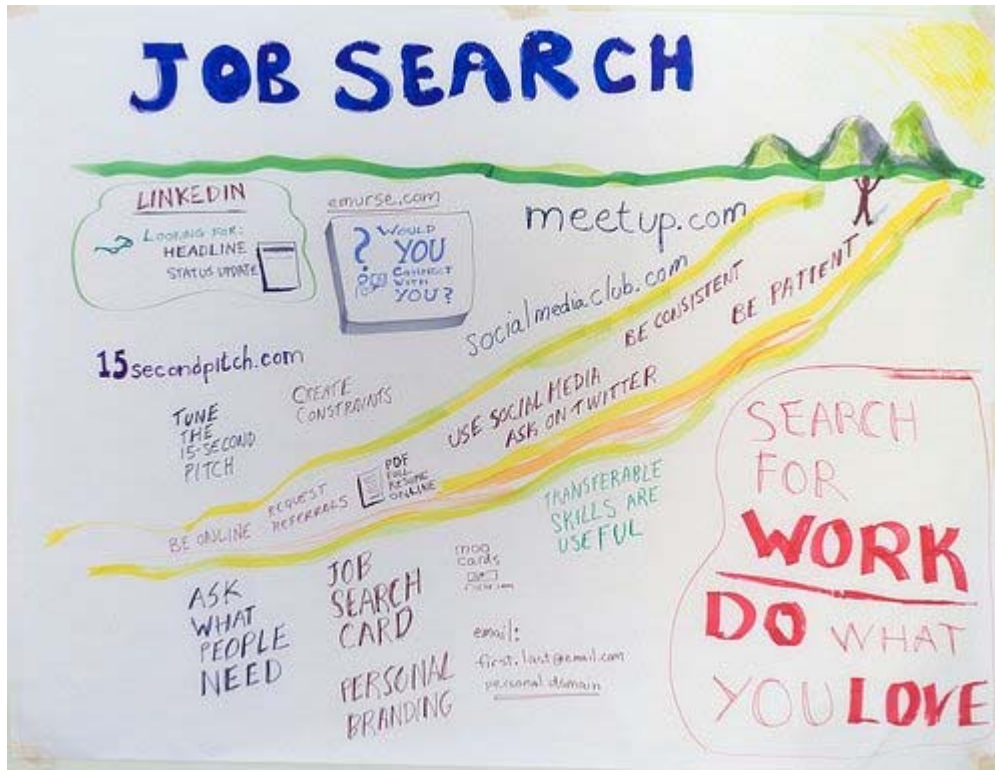 JOB SEARCH
LINKEDIN
LOOKING FOR:
HEADLINE
STATUS UPDATE
emurse.com
? WOULD
YOU
CONNECT
WITH
YOU?
meetup.com
socialmediaclub.com
15secondpitch.com
TUNE
THE
15-SECOND
PITCH
CREATE
CONSTRAINTS
BE ONLINE
REQUEST
REFERRALS
PDF
FULL
RESUME
ONLINE
USE SOCIAL MEDIA
ASK ON TWITTER
BE CONSISTENT
BE PATIENT
TRANSFERABLE
SKILLS ARE
USEFUL
ASK
WHAT
PEOPLE
NEED
JOB
SEARCH
CARD
PERSONAL
BRANDING
moo
cards
email:
first.last@email.com
personal domain
SEARCH
FOR
WORK
DO WHAT
YOU LOVE